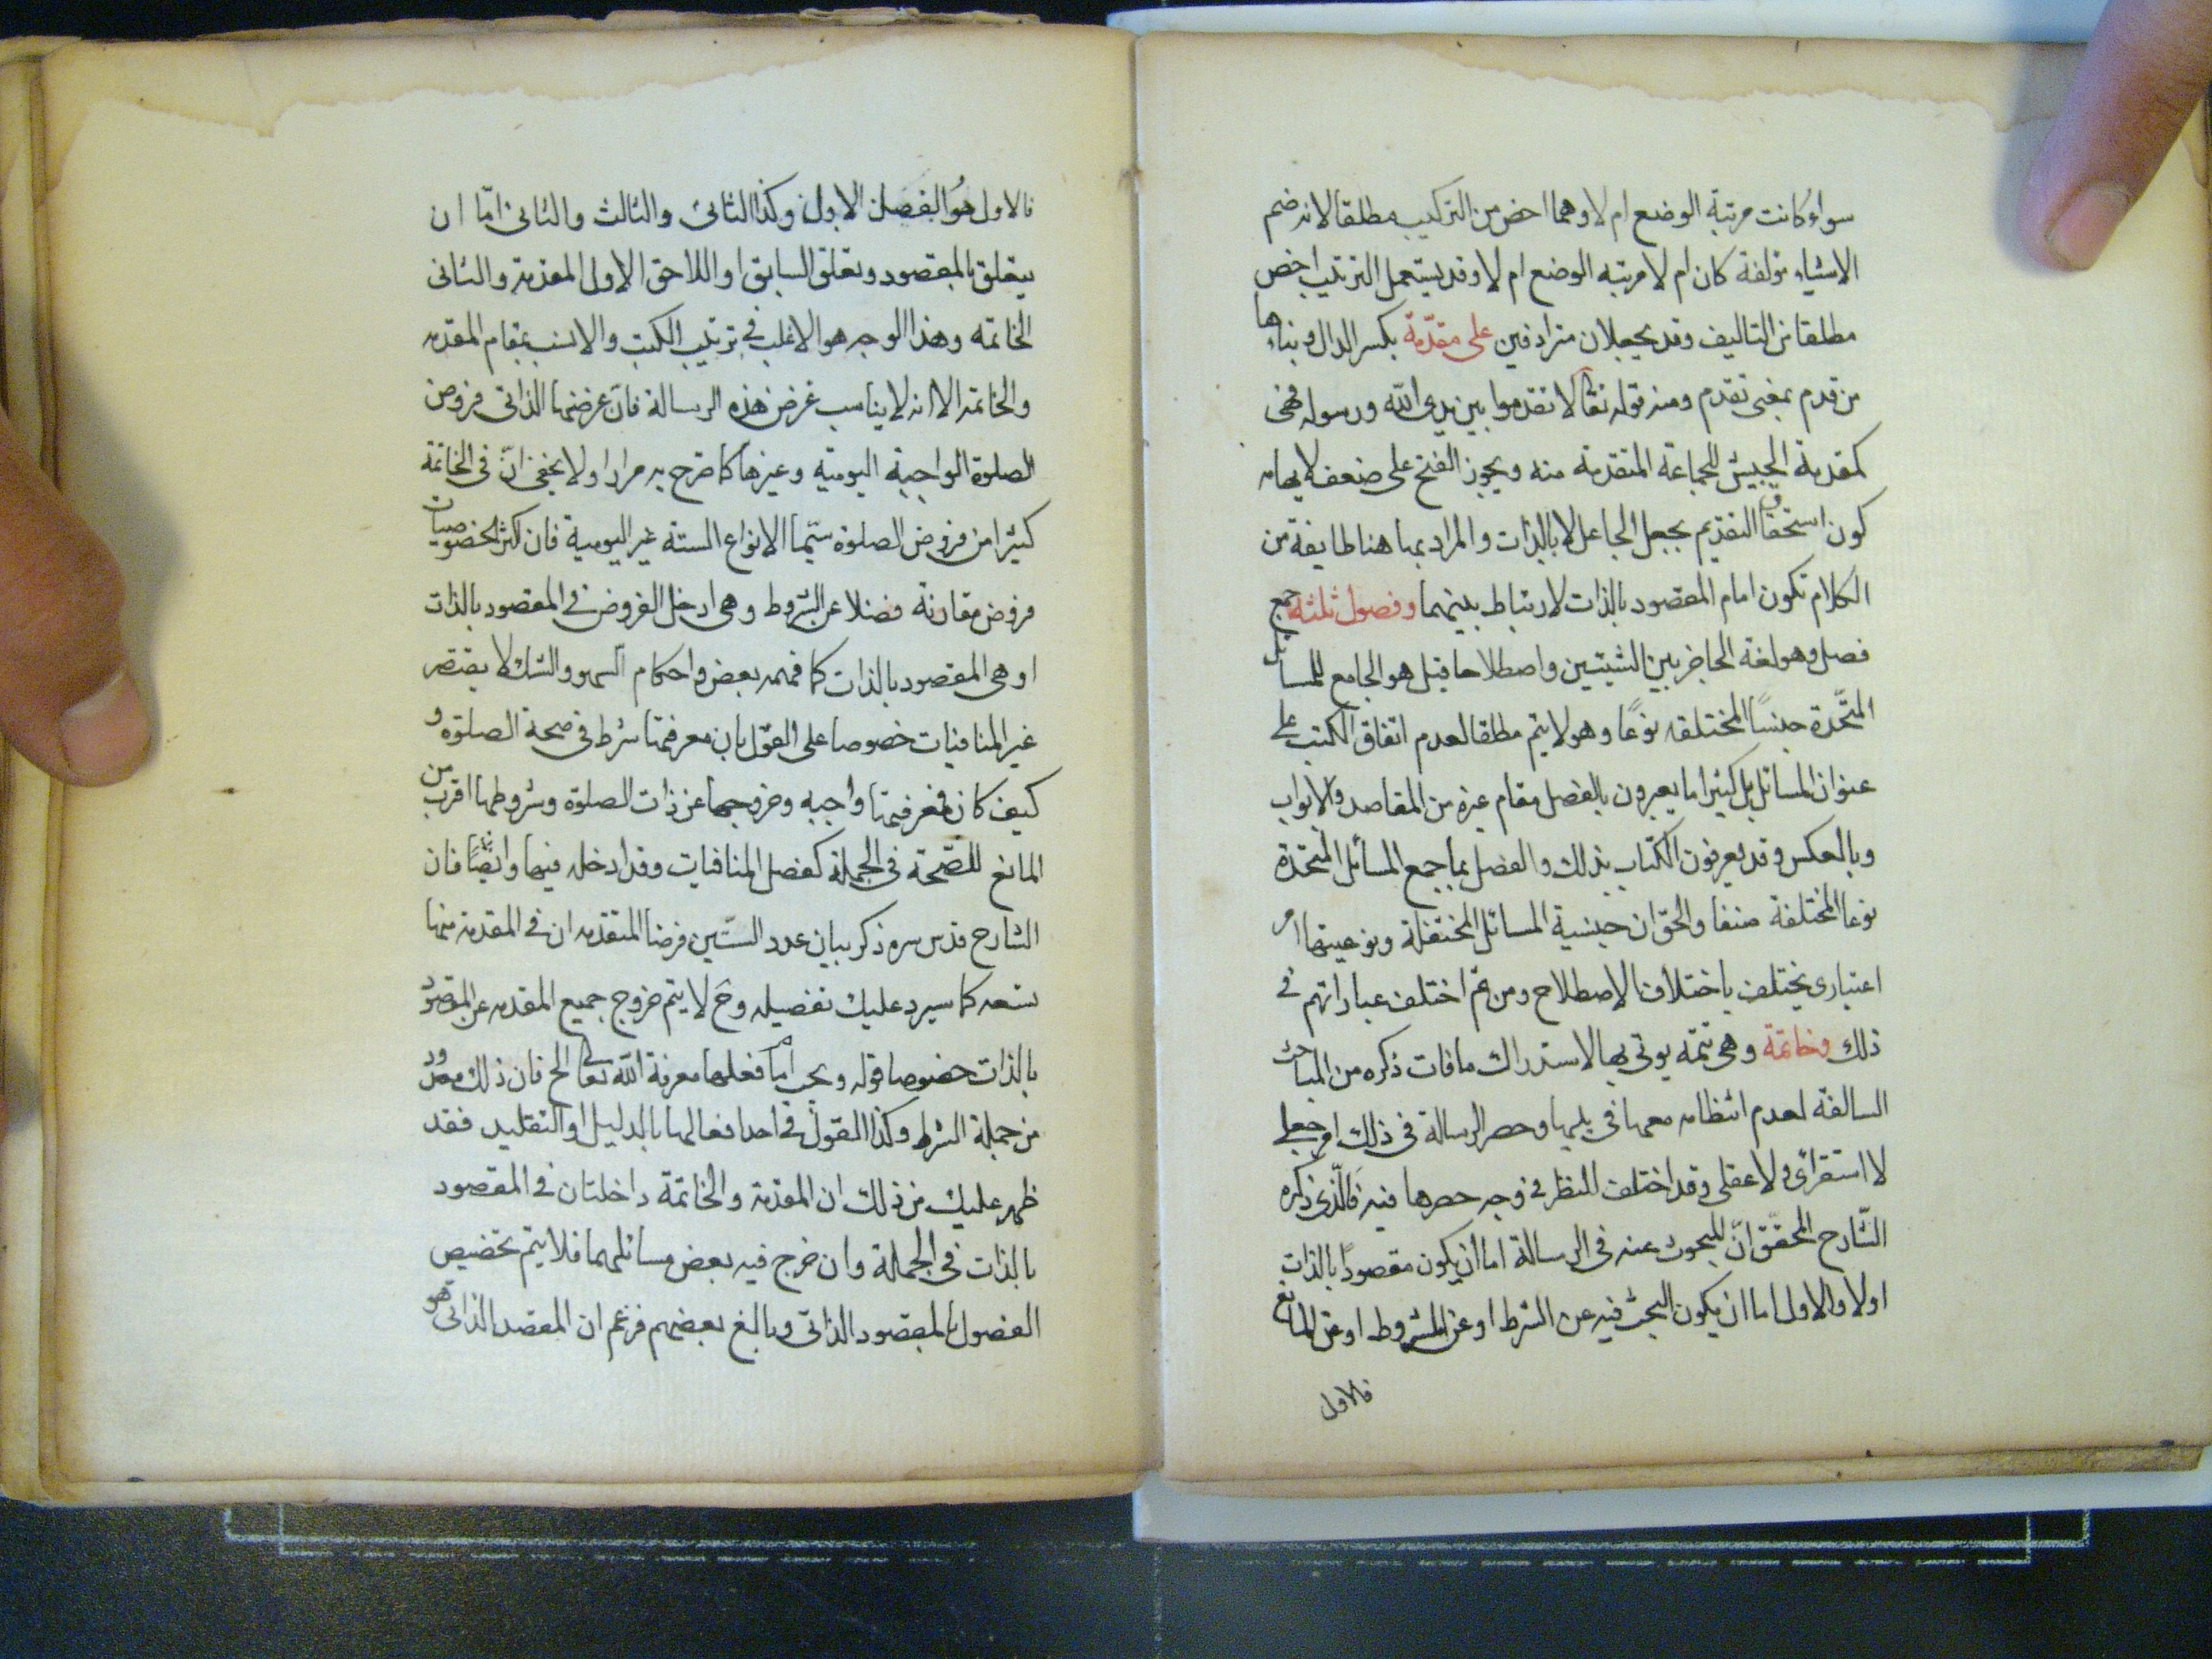 سواء كانت مرتبة الوضع ام لا وهما اخص من التركيب مطلقا لانه ضم
الاشياء مؤلفة كان ام لا مرتبه الوضع ام لا وقد يستعمل الترتيب اخص
مطلقا من التاليف وقد يجعلان مترادفين على مقدّمة بكسر الدال وبناءها
من قدم بمعنى تقدم ومنه قوله تعالى لا تقدموا بين يدى الله ورسوله فهى
كمقدمة الجيش للجماعة المتقدمة منه ويجوز الفتح على ضعف لايهامه
كون استحقاق التقديم بجعل الجاعل لا بالذات والمراد بها هنا طايفة من
الكلام تكون امام المقصود بالذات لارتباط بينهما وفصول ثلثه جمع
فصل وهو لغة الحاجز بين الشيئين واصطلاحا قيل هو الجامع للمسائل
المتّحدة جنسًا المختلفه نوعًا وهو لا يتم مطلقا لعدم اتفاق الكتب على
عنوان المسائل بل كثيرا ما يعبرون بالفصل مقام غيره من المقاصد والابواب
وبالعكس وقد يعرفون الكتاب بذلك والفصل بما جمع المسائل المتحدة
نوعا المختلفة صنفا والحقّ ان جنسية المسائل المختلفة ونوعيتها امر
اعتبارى يختلف باختلاف الاصطلاح ومن ثم اختلف عباراتهم في
ذلك وخاتمة وهى تتمة يوتى بها لاستدراك ما فات ذكره من المباحث
السالفة لعدم انتظامه معها فى بابها وحصر الرسالة فى ذلك امر جعلى
لا استقرائى ولا عقلى وقد اختلف النظر في وجه حصرها فيه فالّذى ذكره
الشّارح المحقّق انّ المبحوث عنه فى الرسالة اما أن يكون مقصودًا بالذات
اولا والاول اما ان يكون البحث فيه عن الشرط او عن المشروط او عن المانع
فالاول
فالاول هُو الفصل الاول وكذا الثانى والثالث والثانى امّا ان
يتعلق بالمقصود وتعلق السابق او اللاحق الاول المقدمة والثانى
الخاتمة وهذا الوجه هو الاغلب في ترتيب الكتب والانسب بمقام المقدمه
والخاتمه الا انه لا يناسب غرض هذه الرسالة فان غرضها الذاتى فروض
الصلوة الواجبة اليومية وغيرها كما صرح به مرارا ولا يخفى انّ فى الخاتمة
كثيرا من فروض الصلوة سيّما الانواع الستة غير اليومية فان اكثر الخصوصيات
فروض مقارنة فضلا عن الشروط وهى ادخل الفروض في المقصود بالذات
او هى المقصود بالذات كما فهمه بعض واحكام السهو والشك لا يقتصر
غير المنافيات خصوصا على القول بان معرفتها شرط فى صحة الصلوة و
كيف كان فمعرفتها واجبه وخروجها عن ذات الصلوة وشروطها اقرب من
المانع للصّحة فى الجملة كفصل المنافيات وقد ادخله فيها وايضًا فان
الشارح قدس سره ذكر ببيان عدد الستّين فرضا المتقدمه ان في المقدمة منها
تسعه كما سيرد عليك تفصيله وح لا يتم خروج جميع المقدمه عن المقصود
بالذات خصوصا قوله ويجب امام فعلها معرفة الله تعالى الخ فان ذلك معدود
من جملة الشرط وكذا القول في احد افعالها بالدليل او التقليد فقد
ظهر عليك من ذلك ان المقدمة والخاتمة داخلتان في المقصود
بالذات فى الجملة وان خرج فيه بعض مسائلهما فلا يتم تخصيص
الفصول بالمقصود الذاتى وبالغ بعضهم فزعم ان المقصد الذاتى هو